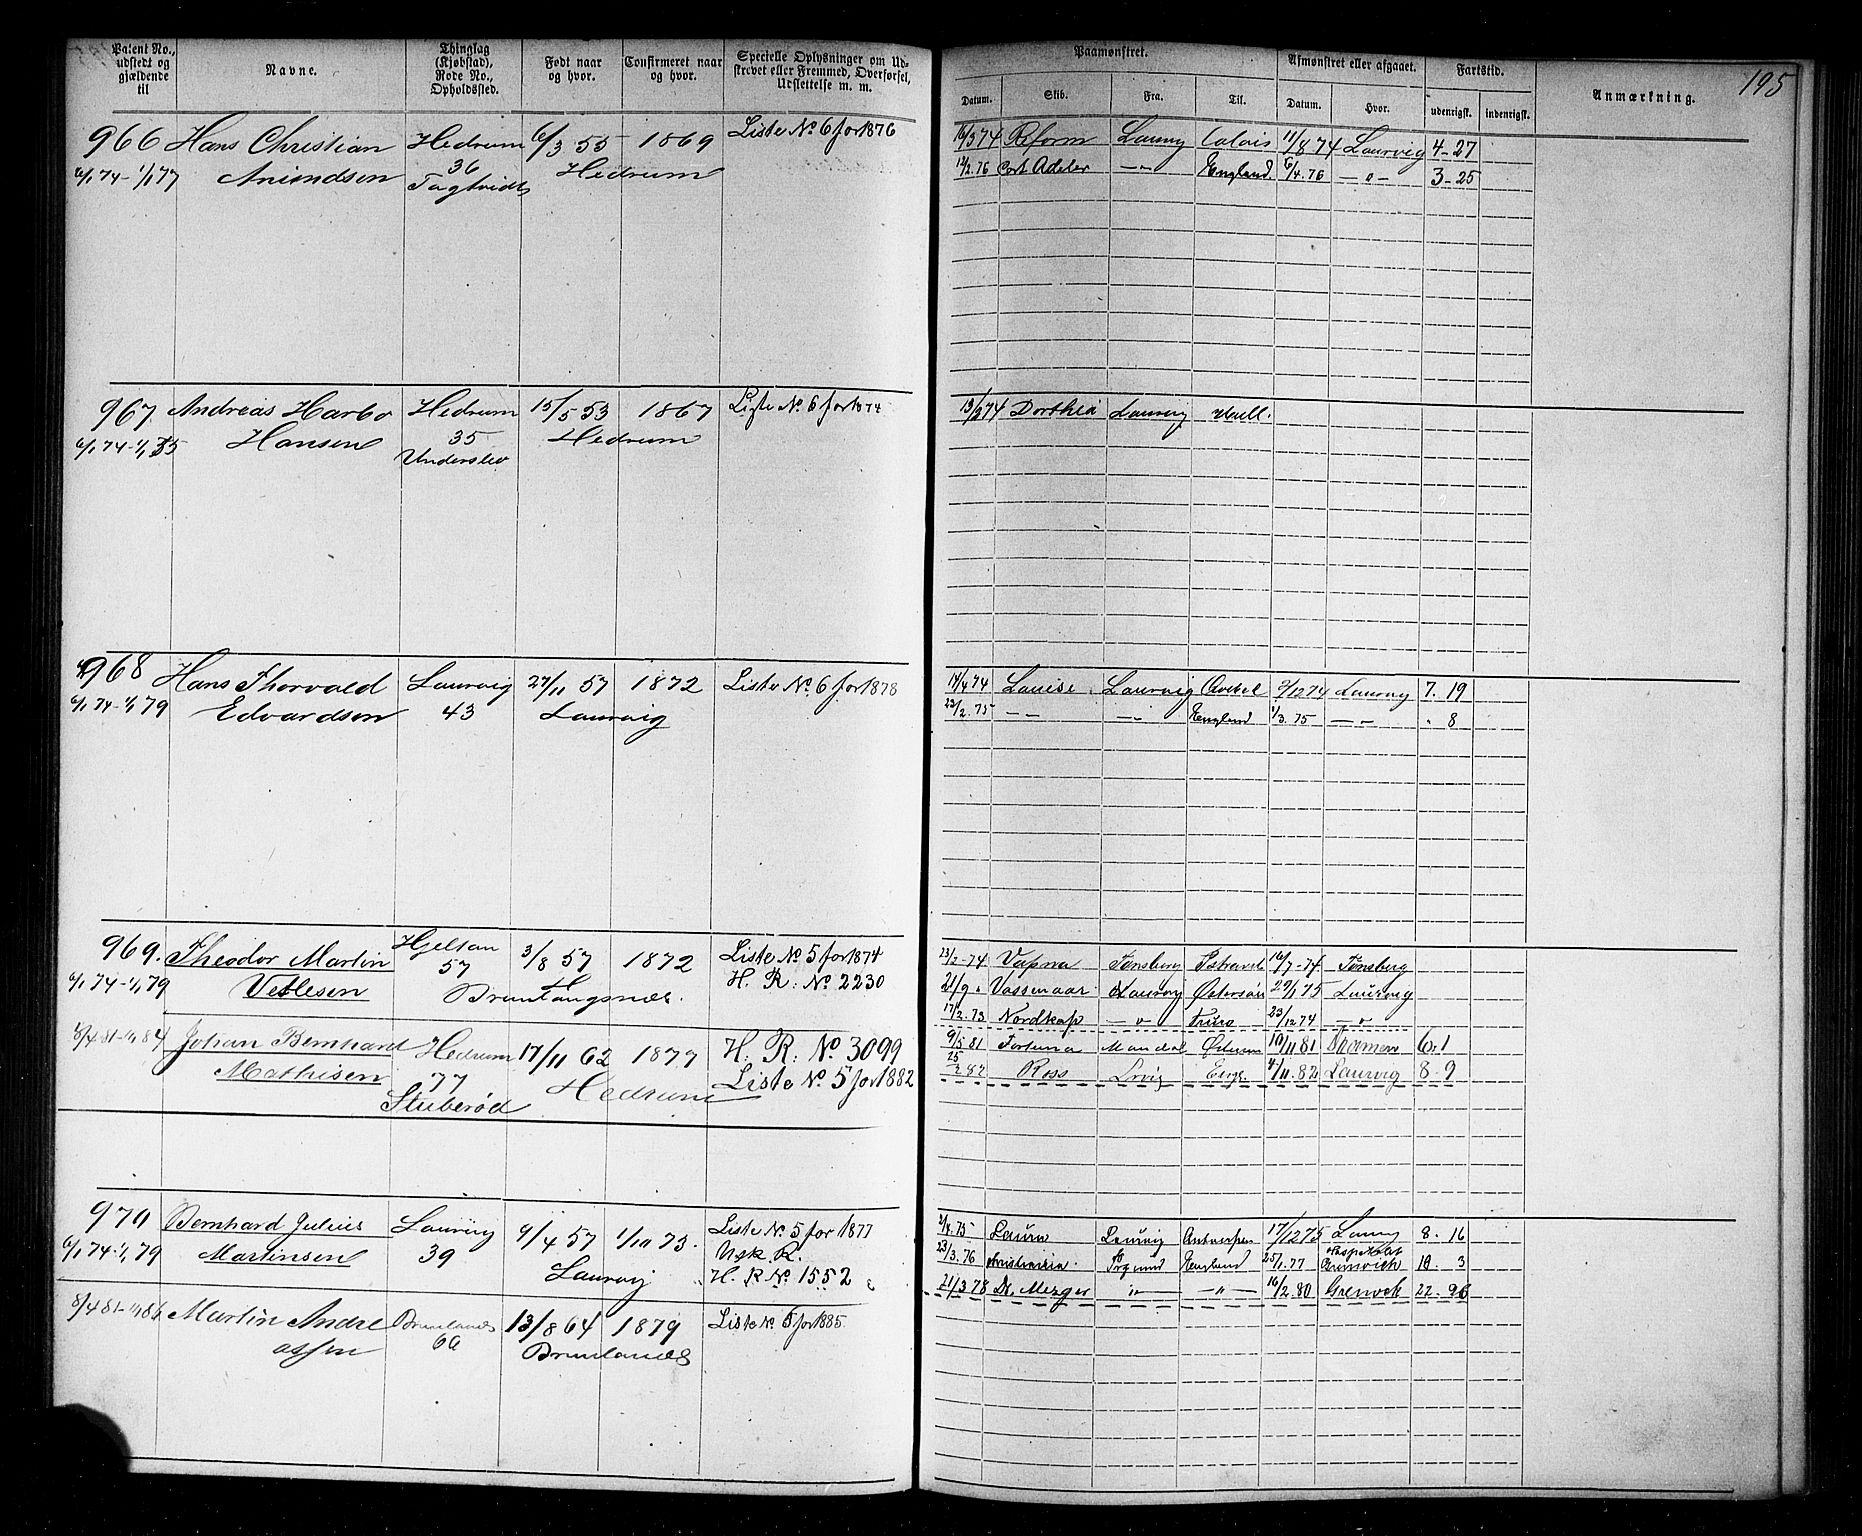 Patent No., udstedt og gjældende til
Navne.
Thinglag (Kjøbstad), Rode No., Opholdssted.
Født naar og hvor.
Confirmeret naar og hvor.
Specielle Oplysninger om Udskrevet eller Fremmed, Overførsel, Udslettelse m. m.
Paamønstret.
Afmønstret eller afgaaet.
Fartstid.
Anmærkning.
195
Datum. Skib. Fra. Til. Datum. Hvor. udenrigsk. indenrigsk.
966 Hans Christian Hedrum 6/3 55 1869 Liste No 6 for 1876
6/1 74 - 1/1 77 36 Hedrum
16/3 74 Reform Laurvig Calais 11/8 74 Laurvig 4-27
12/2.76 Cort Adeler England 6/4.76 3-25
967 Andreas Harbo Hedrum 15/5 53 1867 Liste No 6 for 1874
6/1 74 - 1/1 Hansen 35 Hedrum
Underslev
13/3 74 Dorthea Laurvig Hull.
968 Hans Thorvald Laurvig 27/11 57 1872 Liste No 6 for 1878
6/1 74 - 1/1 79 Edvardsen 43 Laurvig
14/4 74 Louise Laurvig 9/12 74 Laurvig 7. 19
23/2.75 England 1/3.75 " 8
969. Theodor Martin 3/8 57 1872 Liste No 5 for 1874
6/1 74 - 1/1 79 Vetlesen 57 Brunlangsnæs. H. R. No 2230
23/2-74 Vapna Tønsberg 16/7-74 Tønsberg
21/9 " Vassenaar Laurvig Østersøen 29/1 75 Laurvig
17/2.73 Nordkap — " — 23/12 74 — " —
8/4 81 - 1/1 84 Johan Bernhard Hedrum 17/11 62 1877 H. R. No 3099
Mathisen 77 Hedrum Liste No 5 for 1882
Stuberød
9/5 81 Fortuna Mandal 10/11 81 6. 1
Ross Lrvig 4/11.82 Laurvig 8-9
970 Bernhard Julius Laurvig 9/4 57 1/10 73. Liste No 5 for 1877
6/1 74 - 1/1 79 Martinsen 39 Laurvig Udsk R.
H. R No 1552
2/4.75 Laura Laurvig Antwerpen 17/12 75 Laurvig 8. 16
23/3.76 Christiania England 25/1.77 3
21/3 78 M. Mezger — " — — " — 16/2.80 Grenock 22. 26
8/4 81 - 1/1 86 Martin Andre Brunlanæs 13/8 64 1879 Liste No 5 for 1885.
assen Brunlanæs